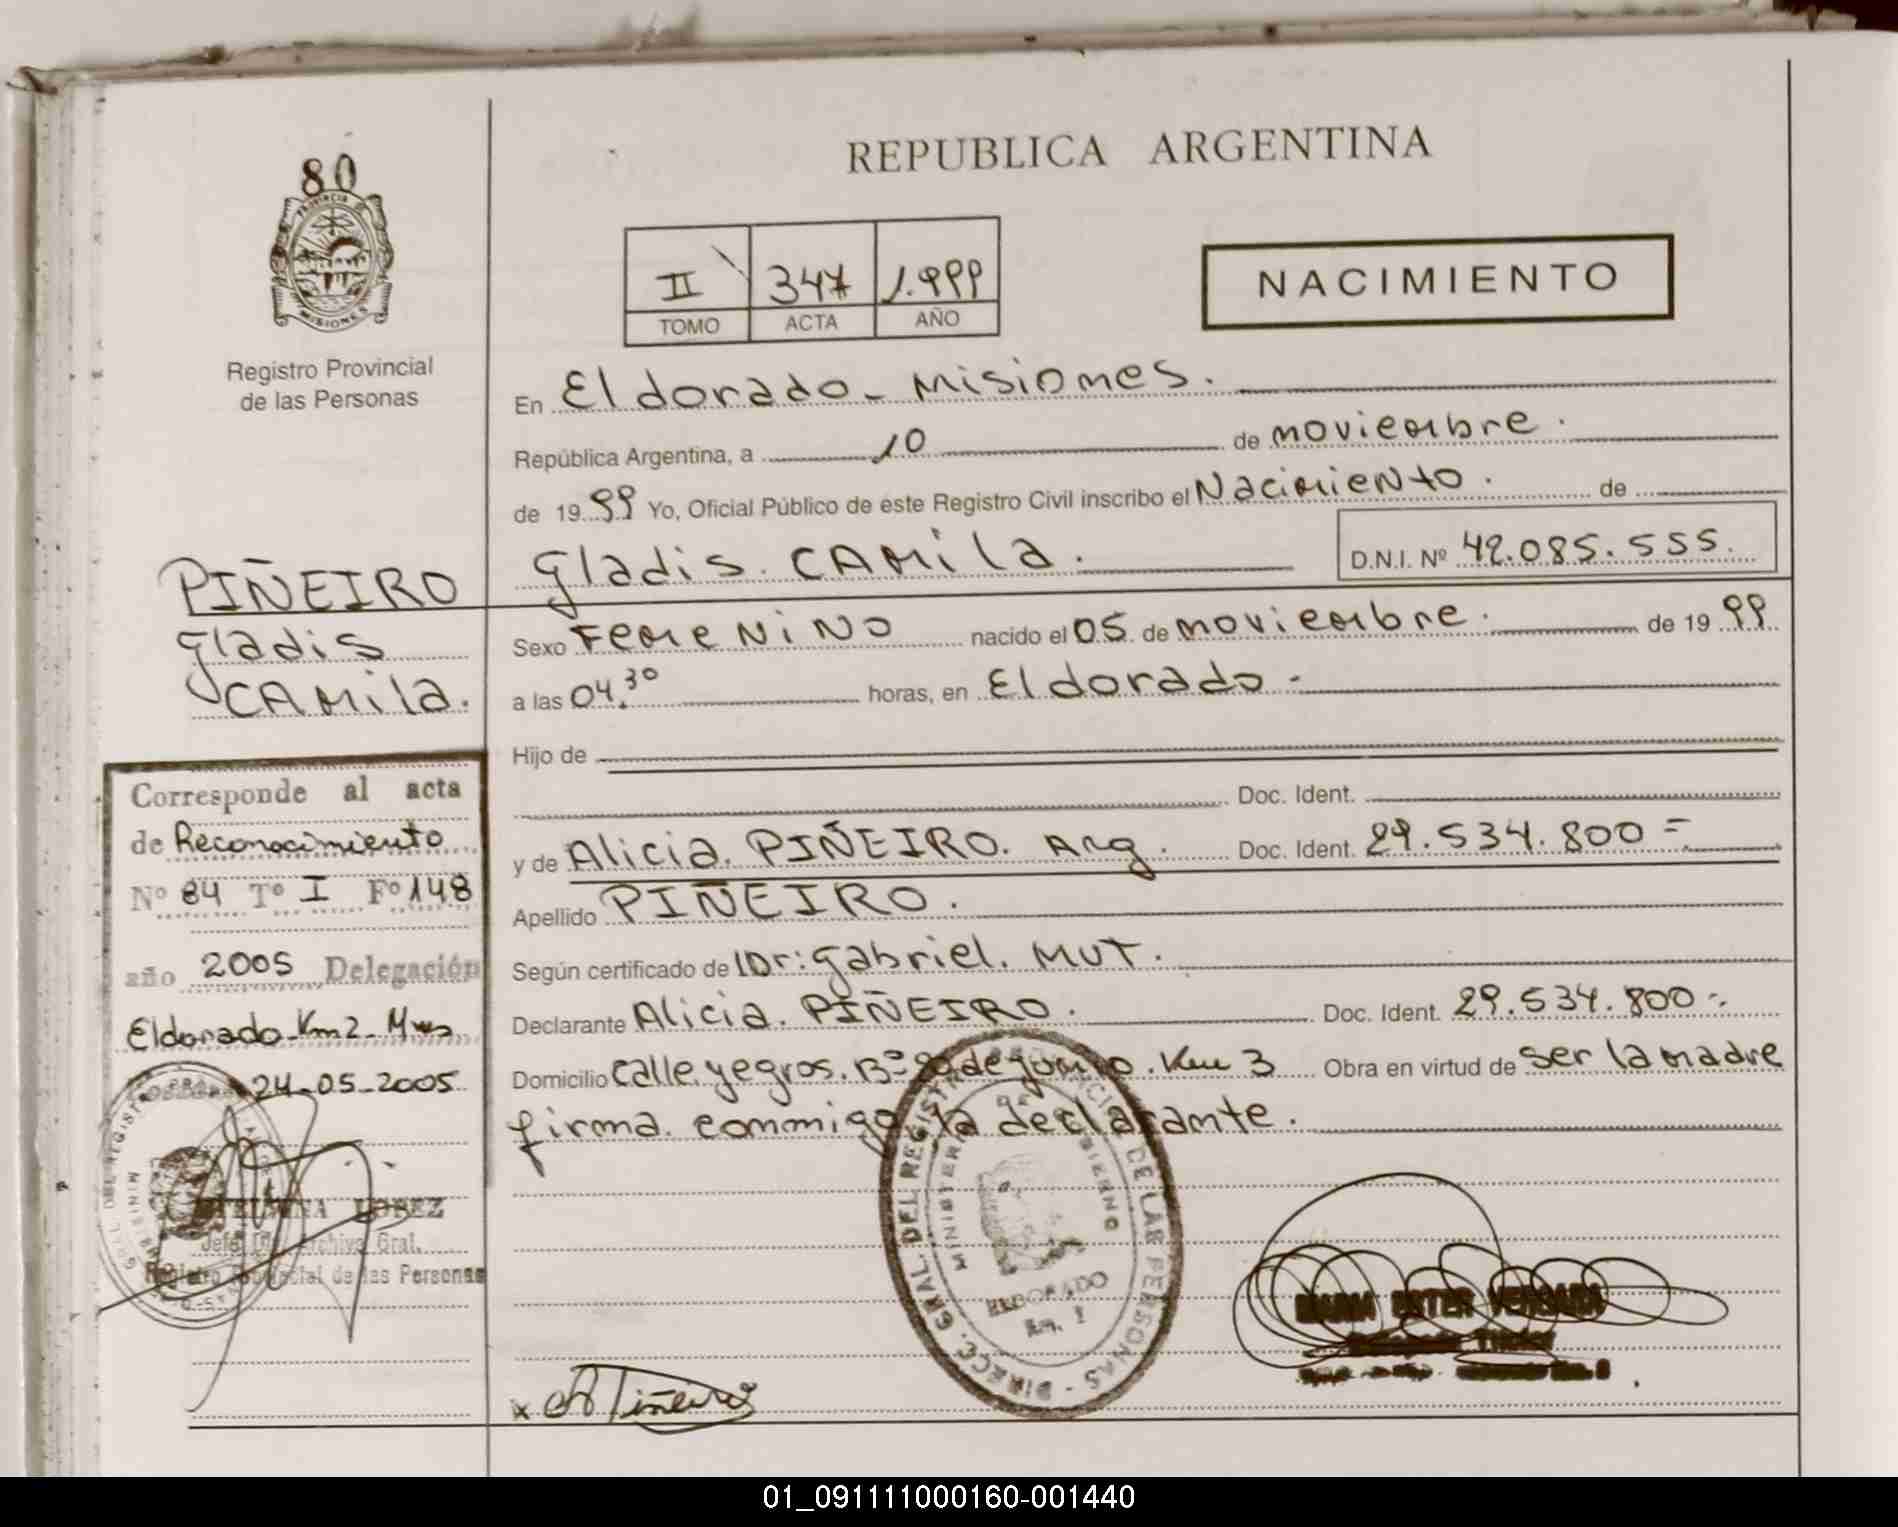 80
PROVINCIA DE
MISIONES
Registro Provincial
de las Personas
PIÑEIRO
Gladis
CAMila.
Corresponde al acta
de Reconocimiento
Nº 84 Tº I Fº 148
año 2005 Delegación
Eldorado-Km2-Mnes
24-05-2005
LOPEZ
Jefe Archivo Gral.
Registro Provincial de las Personas
REPUBLICA ARGENTINA
II 347 1.999
TOMO ACTA AÑO
NACIMIENTO
En Eldorado - Misiones.
República Argentina, a 10 de noviembre.
de 1999 Yo, Oficial Público de este Registro Civil inscribo el Nacimiento. de
Gladis. CAMila. D.N.I. Nº 42.085.555.
Sexo FemeNiNo nacido el 05. de noviembre. de 1999
a las 04.30 horas, en Eldorado.-
Hijo de
Doc. Ident.
y de Alicia. PIÑEIRO. Arg. Doc. Ident. 29.534.800=
Apellido PIÑEIRO.
Según certificado de Dr: Gabriel. MUT.
Declarante Alicia. PIÑEIRO. Doc. Ident. 29.534.800-.
Domicilio Calle. yegros. Bº 20 de Junio. Km 3 Obra en virtud de ser la madre
firma. conmigo la declarante.
DIRECC. GRAL. DEL REGISTRO PROVINCIAL DE LAS PERSONAS
MINISTERIO DE GOBIERNO
ELDORADO
Km. 2
MARIA ESTER VERGARA
Titular
x A Piñeiro
01_091111000160-001440